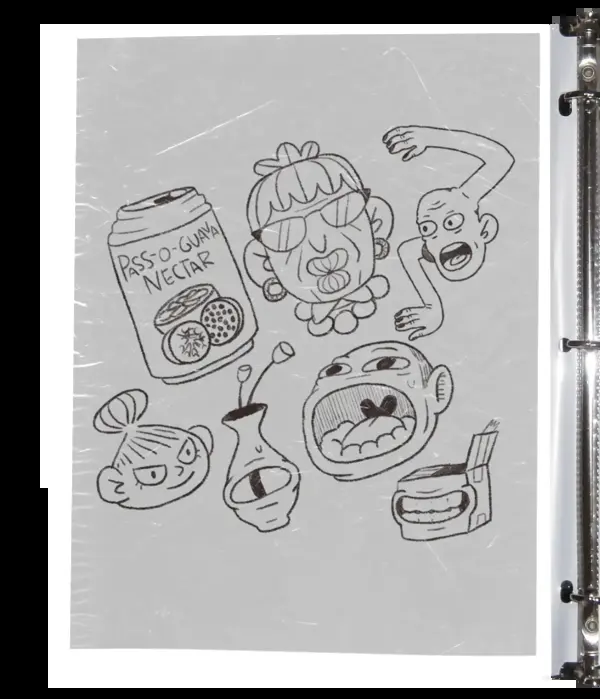 PASS-O-GUAVA
NECTAR